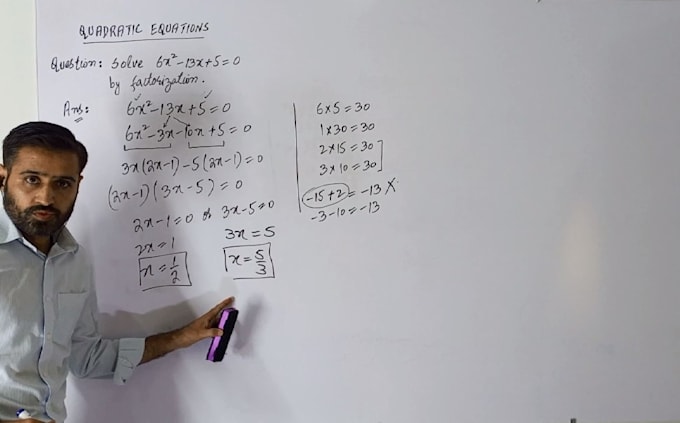 QUADRATIC EQUATIONS
Question: Solve 6x²-13x+5=0
by factorization.
Ans: 6x²-13x+5=0
6x²-3x-10x+5=0
3x(2x-1)-5(2x-1)=0
(2x-1)(3x-5)=0
2x-1=0 or 3x-5=0
2x=1
3x=5
x=1/2
x=5/3
6×5=30
1×30=30
2×15=30
3×10=30
-15+2=-13 ×
-3-10=-13